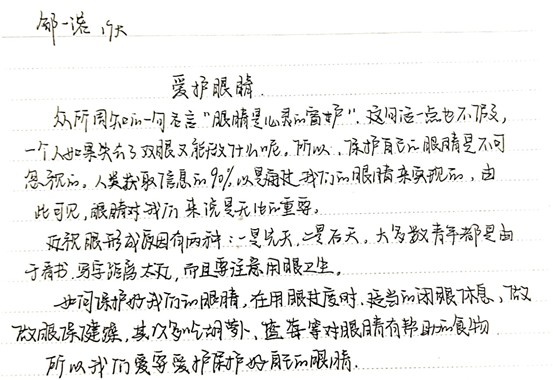 邹一诺 19天
爱护眼睛
众所周知的一句名言“眼睛是心灵的窗护”.这句话一点也不假,
一个人如果失去了双眼又能做什么呢,所以、保护自己的眼睛是不可
忽视的,人类获取信息的90%以是通过我们的眼睛来实现的,由
此可见,眼睛对我们来说是无比的重要。
近视眼形成原因有两种:一是先天,二是后天,大多数青年都是由
于看书.写字距离太近,而且要注意用眼卫生。
如何保护好我们的眼睛,在用眼过度时.适当的闭眼休息,做
做眼保健操,其次多吃胡萝卜、蓝莓等对眼睛有帮助的食物
所以我们爱要爱护保护好自己的眼睛.